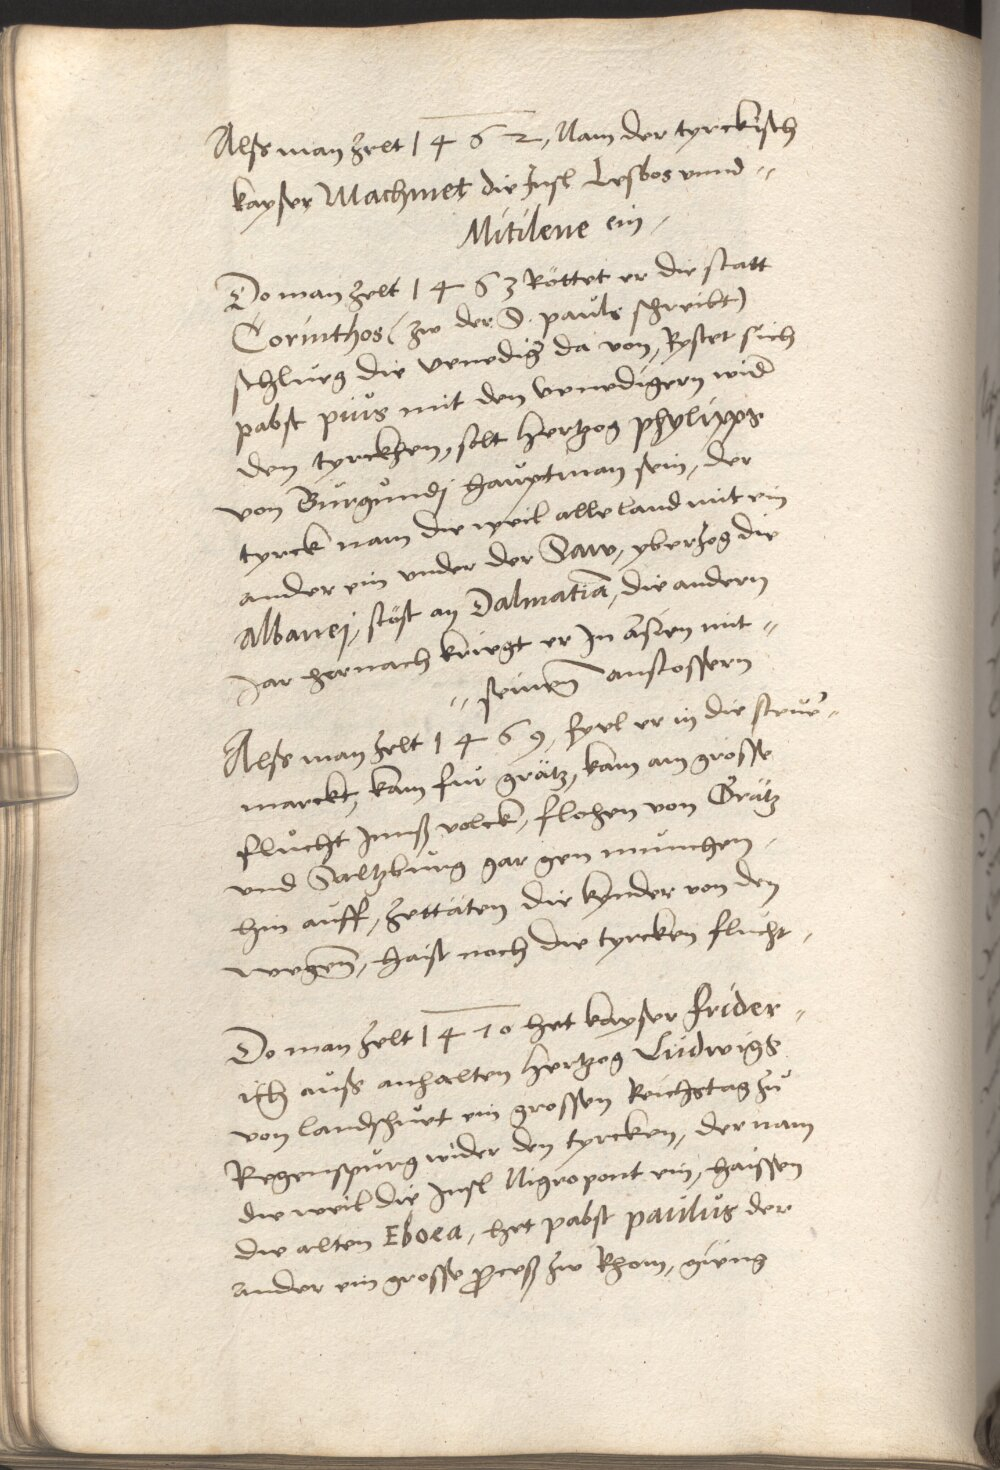 Alss man zelt 1462, Nam der tyrckisch
kayser Machmet die Insl Lesbos vnnd
Mitilene ein /
Do man zelt 1463 Röttet er die statt
Corinthos (zw der S. pauls schreibt)
schlueg die venedig da von, Rystet sich
pabst pius mit den venedigern wid
den tyrckhen, solt hertzog phylipps
von Burgundj hauptman sein, der
tyrck nam die weil alle land mit ein
ander ein vnder der Saw, yberzog die
Albanej, stöst an Dalmatiā, die andern
Jar hernach kriegt er In asien mit
seinen anstossern
Alss man zelt 1469, fyel er in die steur
marckt, kam fur grätz, kam ain grosse
flucht Innss volck, flohen von Grätz
vnd Saltzburg gar gen munchen
hin auff, zettäten die kynder von den
wegen, haist noch die tyrcken flucht
Do man zelt 1470 het kayser frider
ich auss anhalten hertzog Ludwigs
von landshuet ein grossen Reichstag zu
Regenspurg wider den tyrcken, der nam
die weil die Insl Nigropont ein, haissen
die alten Eboea, het pabst paulus der
ander ein grosse proceß zw Rhom, gieng